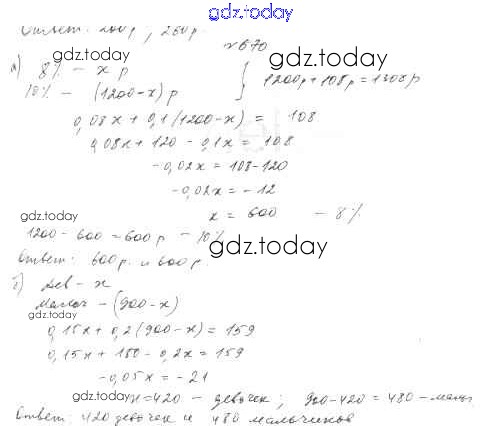 gdz.today
Ответ: 200р, 250р.
gdz.today
№670
gdz.today
а) 8% - x р
10% - (1200-x) р } 1200р+108р=1308р
0,08x + 0,1(1200-x) = 108
0,08x + 120 - 0,1x = 108
-0,02x = 108-120
-0,02x = -12
x = 600 - 8%
gdz.today
1200 - 600 = 600р - 10%
gdz.today
Ответ: 600р. и 600р.
б) Дев - x
Мальч - (900-x)
gdz.today
0,15x + 0,2(900-x) = 159
0,15x + 180 - 0,2x = 159
-0,05x = -21
gdz.today
x=420 - девочек; 900-420 = 480 - мальч
gdz.today
Ответ: 420 девочек и 480 мальчиков